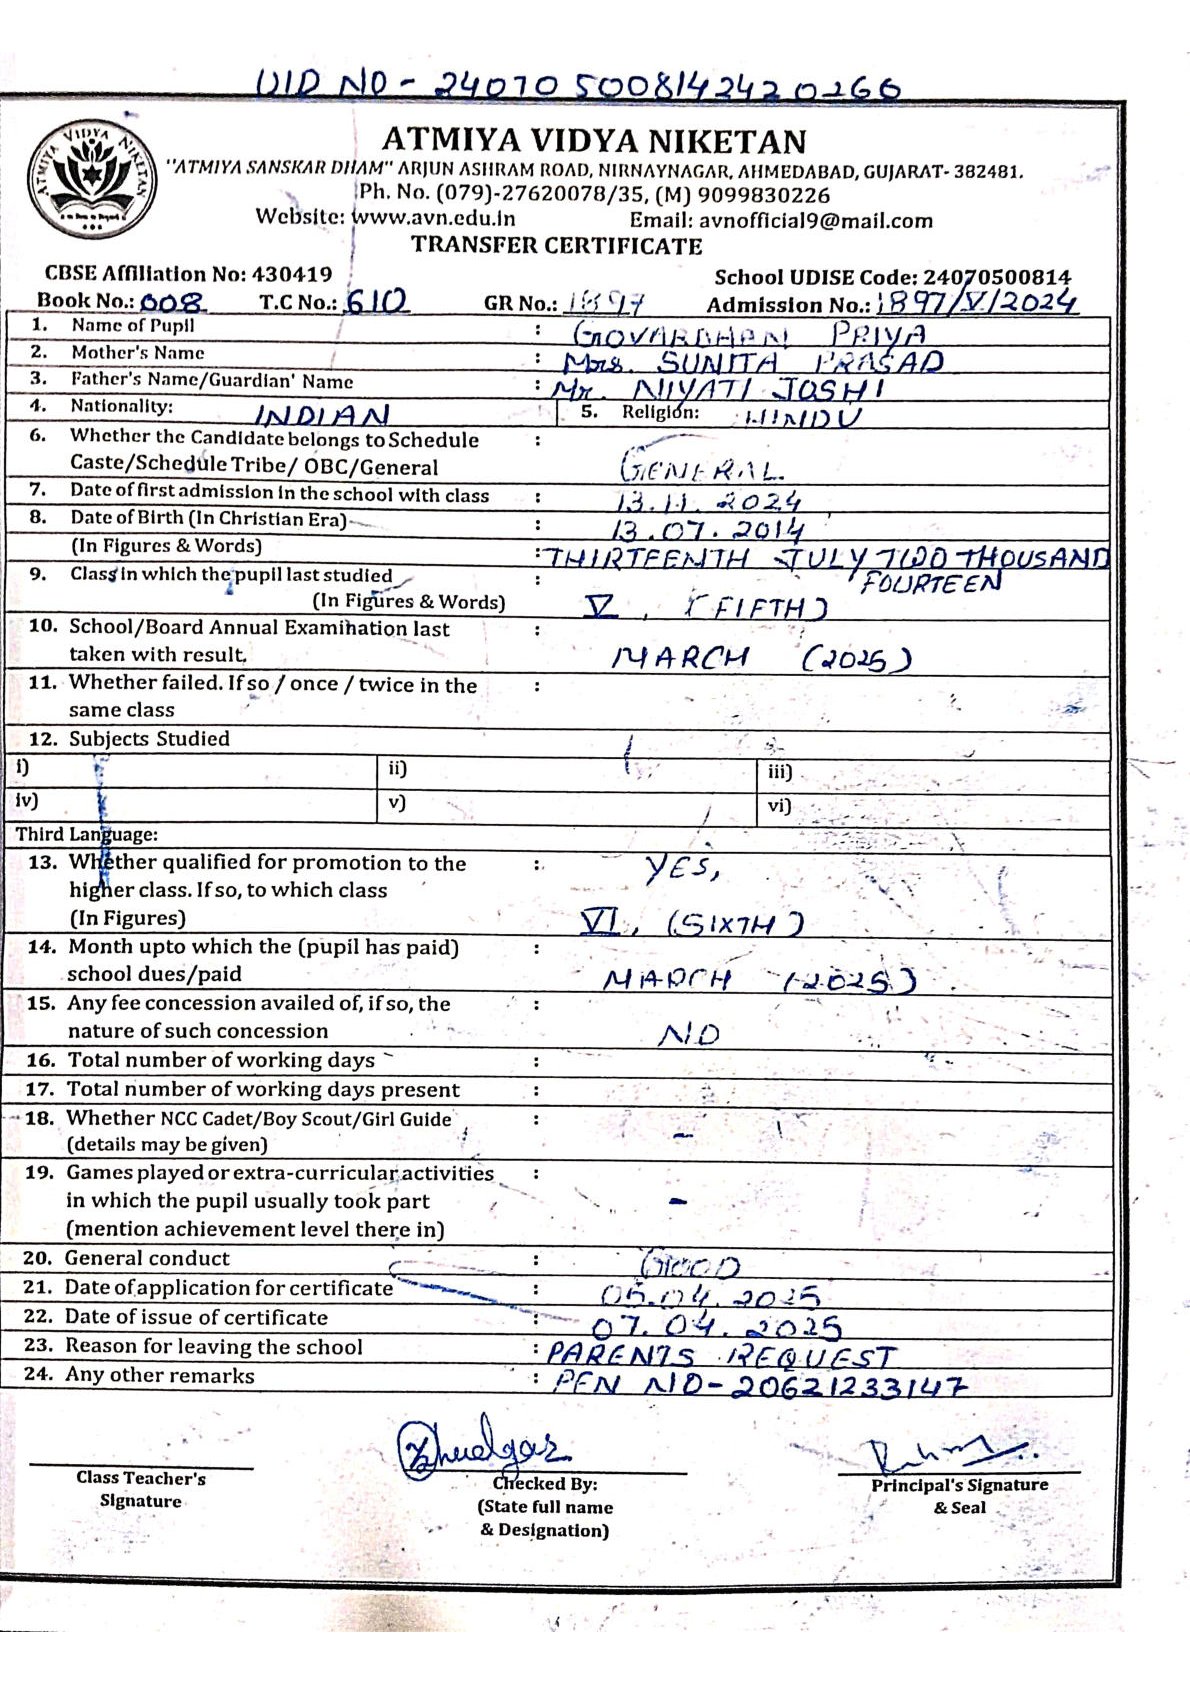 UID NO - 240705008142420266
ATMIYA VIDYA NIKETAN
ATMIYA VIDYA NIKETAN
"ATMIYA SANSKAR DHAM" ARJUN ASHRAM ROAD, NIRNAYNAGAR, AHMEDABAD, GUJARAT- 382481.
Ph. No. (079)-27620078/35, (M) 9099830226
Website: www.avn.edu.in Email: avnofficial9@mail.com
TRANSFER CERTIFICATE
CBSE Affiliation No: 430419 School UDISE Code: 24070500814
Book No.: 008 T.C No.: 610 GR No.: 1897 Admission No.: 1897/V/2024
1. Name of Pupil : GOVARDHAN PRIYA
2. Mother's Name : Mrs. SUNITA PRASAD
3. Father's Name/Guardian' Name : Mr. NIYATI JOSHI
4. Nationality: INDIAN 5. Religion: HINDU
6. Whether the Candidate belongs to Schedule :
Caste/Schedule Tribe/ OBC/General GENERAL.
7. Date of first admission in the school with class : 13.11.2024
8. Date of Birth (In Christian Era) : 13.07.2014
(In Figures & Words) : THIRTEENTH JULY TWO THOUSAND
FOURTEEN
9. Class in which the pupil last studied :
(In Figures & Words) V, (FIFTH)
10. School/Board Annual Examination last :
taken with result. MARCH (2025)
11. Whether failed. If so / once / twice in the :
same class
12. Subjects Studied
i) ii) iii)
iv) v) vi)
Third Language:
13. Whether qualified for promotion to the : YES,
higher class. If so, to which class
(In Figures) VI, (SIXTH)
14. Month upto which the (pupil has paid) :
school dues/paid MARCH (2025)
15. Any fee concession availed of, if so, the :
nature of such concession NO
16. Total number of working days :
17. Total number of working days present :
18. Whether NCC Cadet/Boy Scout/Girl Guide :
(details may be given) -
19. Games played or extra-curricular activities :
in which the pupil usually took part -
(mention achievement level there in)
20. General conduct : GOOD
21. Date of application for certificate : 05.04.2025
22. Date of issue of certificate : 07.04.2025
23. Reason for leaving the school : PARENTS REQUEST
24. Any other remarks : PEN NO-20621233147
Class Teacher's
Signature
Checked By:
(State full name
& Designation)
Principal's Signature
& Seal